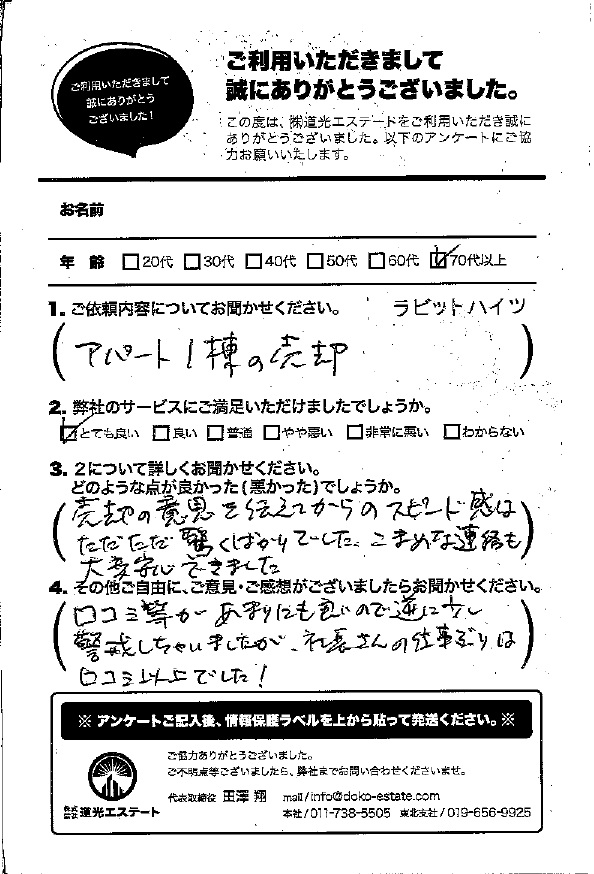 ご利用いただきまして
誠にありがとう
ございました！
ご利用いただきまして
誠にありがとうございました。
この度は、㈱道光エステートをご利用いただき誠に
ありがとうございました。以下のアンケートにご協
力お願いいたします。
お名前
年 齢 20代 30代 40代 50代 60代 70代以上
1. ご依頼内容についてお聞かせください。 ラビットハイツ
アパート1棟の売却
2. 弊社のサービスにご満足いただけましたでしょうか。
とても良い 良い 普通 やや悪い 非常に悪い わからない
3. 2について詳しくお聞かせください。
どのような点が良かった(悪かった)でしょうか。
売却の意思を伝えてからのスピード感は
ただただ驚くばかりでした。こまめな連絡も
大変安心できました
4. その他ご自由に、ご意見・ご感想がございましたらお聞かせください。
口コミ等があまりにも良いので逆に少し
警戒しちゃいましたが、社長さんの仕事ぶりは
口コミ以上でした！
※ アンケートご記入後、情報保護ラベルを上から貼って発送ください。※
ご協力ありがとうございました。
ご不明点等ございましたら、弊社までお問い合わせくださいませ。
代表取締役 玉澤 翔 mail/info@doko-estate.com
株式会社 道光エステート 本社/011-738-5505 東北支社/019-656-9925